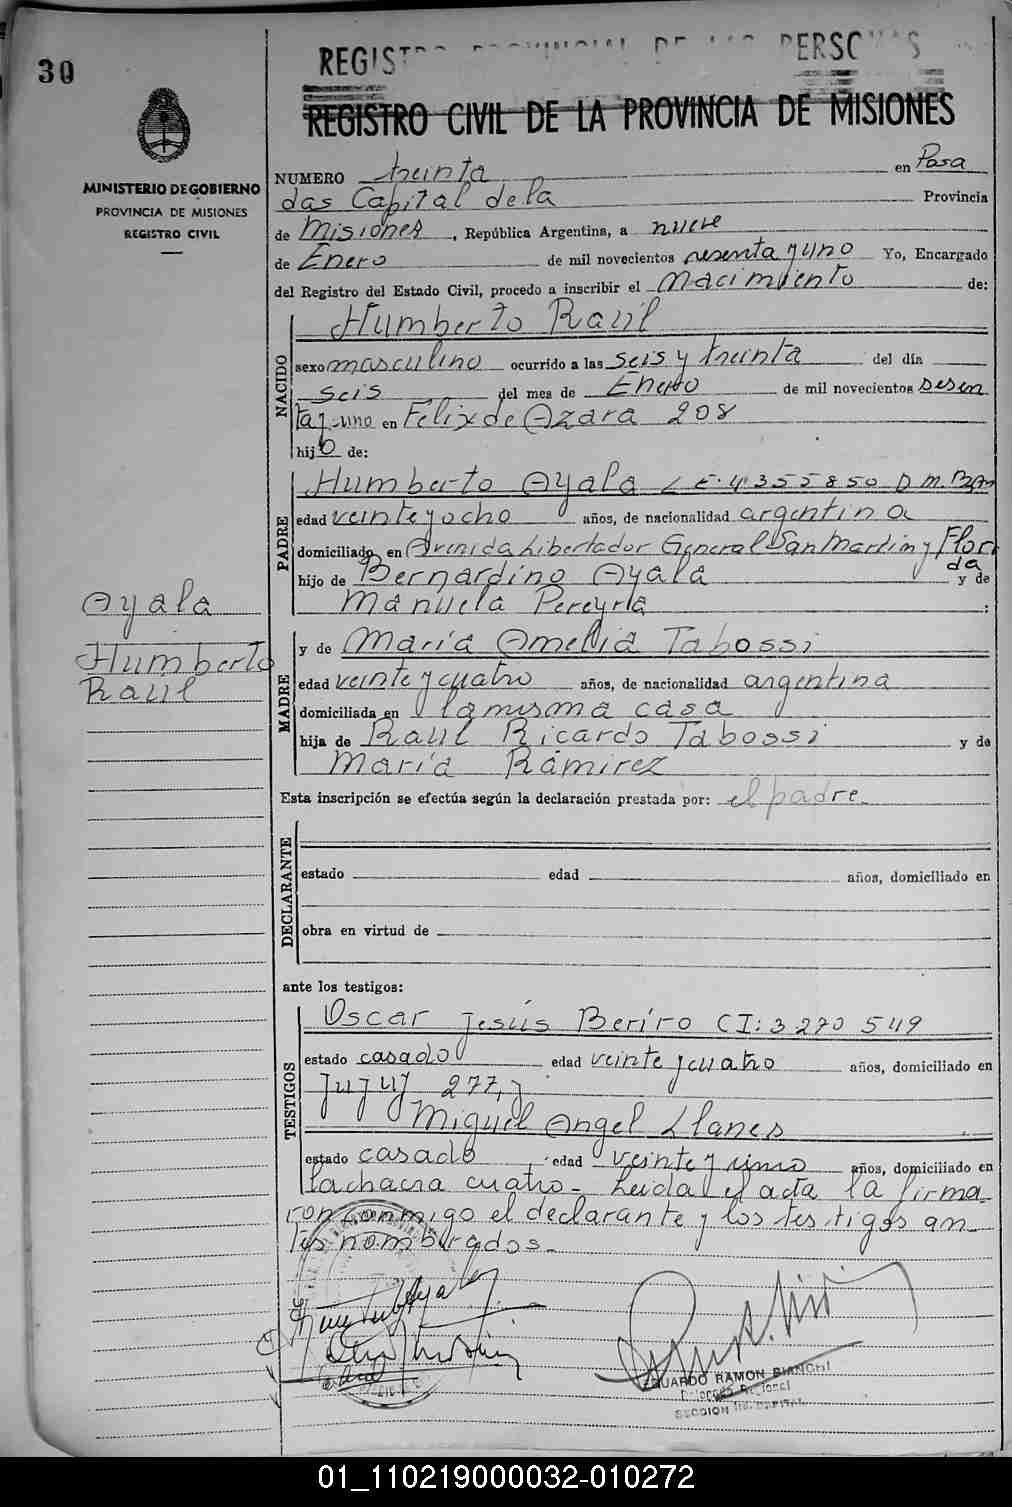 30
REGISTRO PROVINCIAL DE LAS PERSONAS
REGISTRO CIVIL DE LA PROVINCIA DE MISIONES
MINISTERIO DE GOBIERNO
PROVINCIA DE MISIONES
REGISTRO CIVIL
NUMERO treinta en Posa
das Capital de la Provincia
de Misiones, República Argentina, a nueve
de Enero de mil novecientos sesenta y uno Yo, Encargado
del Registro del Estado Civil, procedo a inscribir el Nacimiento de:
NACIDO
Humberto Raúl
sexo masculino ocurrido a las seis y treinta del día
seis del mes de Enero de mil novecientos sesen
ta y uno en Felix de Azara 208
hijo de:
PADRE
Humberto Ayala L E. 4.355.850 D.M.
edad veinte y ocho años, de nacionalidad argentina
domiciliado en Avenida Libertador General San Martin y Flori
da
hijo de Bernardino Ayala y de
Manuela Pereyra :
Ayala
Humberto
Raúl
MADRE
y de María Amelia Tabossi
edad veinte y cuatro años, de nacionalidad argentina
domiciliada en la misma casa
hija de Raul Ricardo Tabossi y de
María Ramirez
Esta inscripción se efectúa según la declaración prestada por: el padre
DECLARANTE
estado edad años, domiciliado en
obra en virtud de
ante los testigos:
TESTIGOS
Oscar Jesús Beriro CI: 3270549
estado casado edad veinte y cuatro años, domiciliado en
Jujuy 277, y
Miguel Angel Llanes
estado casado edad veinte y uno años, domiciliado en
la chacra cuatro - Leida el acta la firma
con conmigo el declarante y los testigos an
tes nombrados.-
EDUARDO RAMON BIANCHI
Delegado Regional
SECCION CAPITAL
01_110219000032-010272